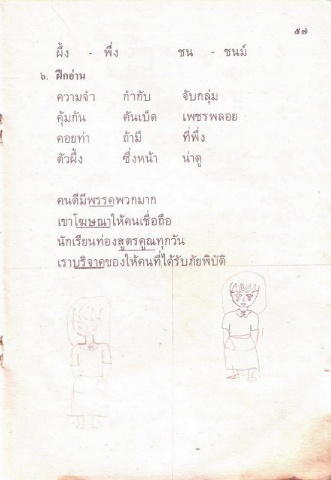 ๕๗
ผึ้ง - พึ่ง ชน - ชนม์
๖. ฝึกอ่าน
ความจำ กำกับ จับกลุ่ม
คุ้มกัน คันเบ็ด เพชรพลอย
คอยท่า ถ้ามี ที่พึ่ง
ตัวผึ้ง ซึ่งหน้า น่าดู
คนดีมีพรรคพวกมาก
เขาโฆษณาให้คนเชื่อถือ
นักเรียนท่องสูตรคูณทุกวัน
เราบริจาคของให้คนที่ได้รับภัยพิบัติ